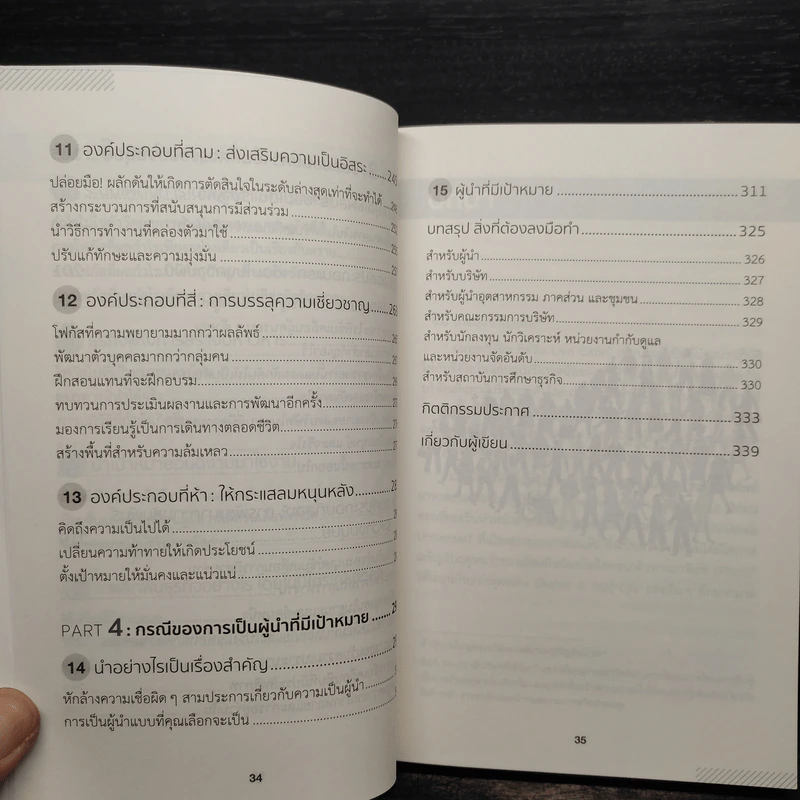 11 องค์ประกอบที่สาม : ส่งเสริมความเป็นอิสระ
ปล่อยมือ! ผลักดันให้เกิดการตัดสินใจในระดับล่างสุดเท่าที่จะทำได้
สร้างกระบวนการที่สนับสนุนการมีส่วนร่วม
นำวิธีการทำงานที่คล่องตัวมาใช้
ปรับแก้ทักษะและความมุ่งมั่น
12 องค์ประกอบที่สี่ : การบรรลุความเชี่ยวชาญ
โฟกัสที่ความพยายามมากกว่าผลลัพธ์
พัฒนาตัวบุคคลมากกว่ากลุ่มคน
ฝึกสอนแทนที่จะฝึกอบรม
ทบทวนการประเมินผลงานและการพัฒนาอีกครั้ง
มองการเรียนรู้เป็นการเดินทางตลอดชีวิต
สร้างพื้นที่สำหรับความล้มเหลว
13 องค์ประกอบที่ห้า : ให้กระแสลมหนุนหลัง
คิดถึงความเป็นไปได้
เปลี่ยนความท้าทายให้เกิดประโยชน์
ตั้งเป้าหมายให้มั่นคงและแน่วแน่
PART 4 : กรณีของการเป็นผู้นำที่มีเป้าหมาย
14 นำอย่างไรเป็นเรื่องสำคัญ
หักล้างความเชื่อผิด ๆ สามประการเกี่ยวกับความเป็นผู้นำ
การเป็นผู้นำแบบที่คุณเลือกจะเป็น
34
15 ผู้นำที่มีเป้าหมาย 311
บทสรุป สิ่งที่ต้องลงมือทำ 325
สำหรับผู้นำ 326
สำหรับบริษัท 327
สำหรับผู้นำอุตสาหกรรม ภาคส่วน และชุมชน 328
สำหรับคณะกรรมการบริษัท 329
สำหรับนักลงทุน นักวิเคราะห์ หน่วยงานกำกับดูแล
และหน่วยงานจัดอันดับ 330
สำหรับสถาบันการศึกษาธุรกิจ 330
กิตติกรรมประกาศ 333
เกี่ยวกับผู้เขียน 339
35